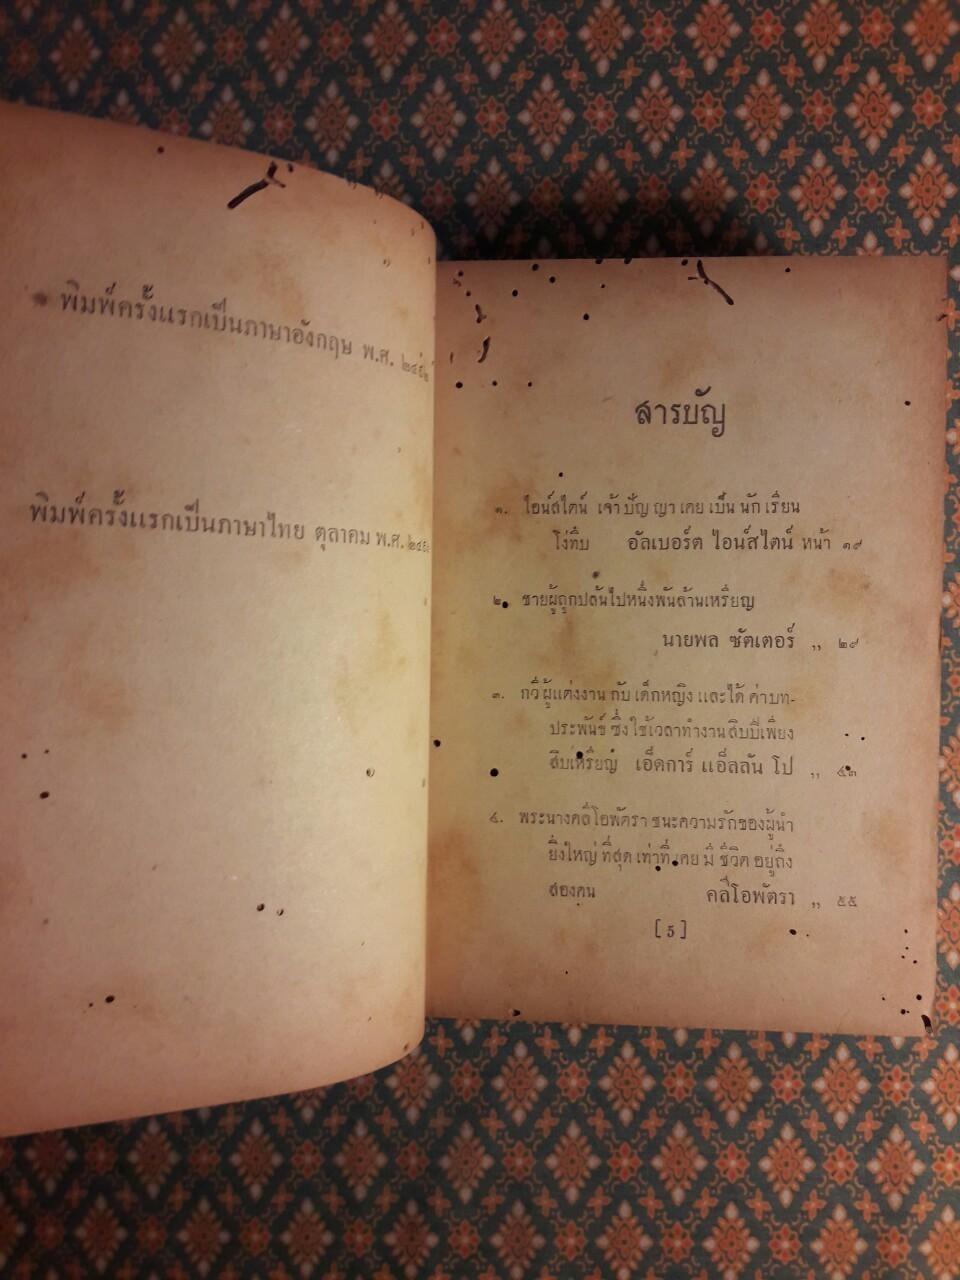 พิมพ์ครั้งแรกเป็นภาษาอังกฤษ พ.ศ.
พิมพ์ครั้งแรกเป็นภาษาไทย ตุลาคม พ.ศ.
สารบัญ
๑. ไอน์สไตน์ เจ้าปัญญาเคยเป็นนักเรียน
โง่ทึบ อัลเบอร์ต ไอน์สไตน์ หน้า ๑๙
๒. ชายผู้ถูกปล้นไปหนึ่งพันล้านเหรียญ
นายพล ซัตเตอร์ ,, ๒๙
๓. กวีผู้แต่งงานกับเด็กหญิงและได้ค่าบท-
ประพันธ์ซึ่งใช้เวลาทำงานสิบปีเพียง
สิบเหรียญ เอ็ดการ์ แอ็ลลัน โป ,, ๔๓
๔. พระนางคลีโอพัตราชนะความรักของผู้นำ
ยิ่งใหญ่ที่สุดเท่าที่เคยมีชีวิตอยู่ถึง
สองคน คลีโอพัตรา ,, ๕๕
[ 5 ]